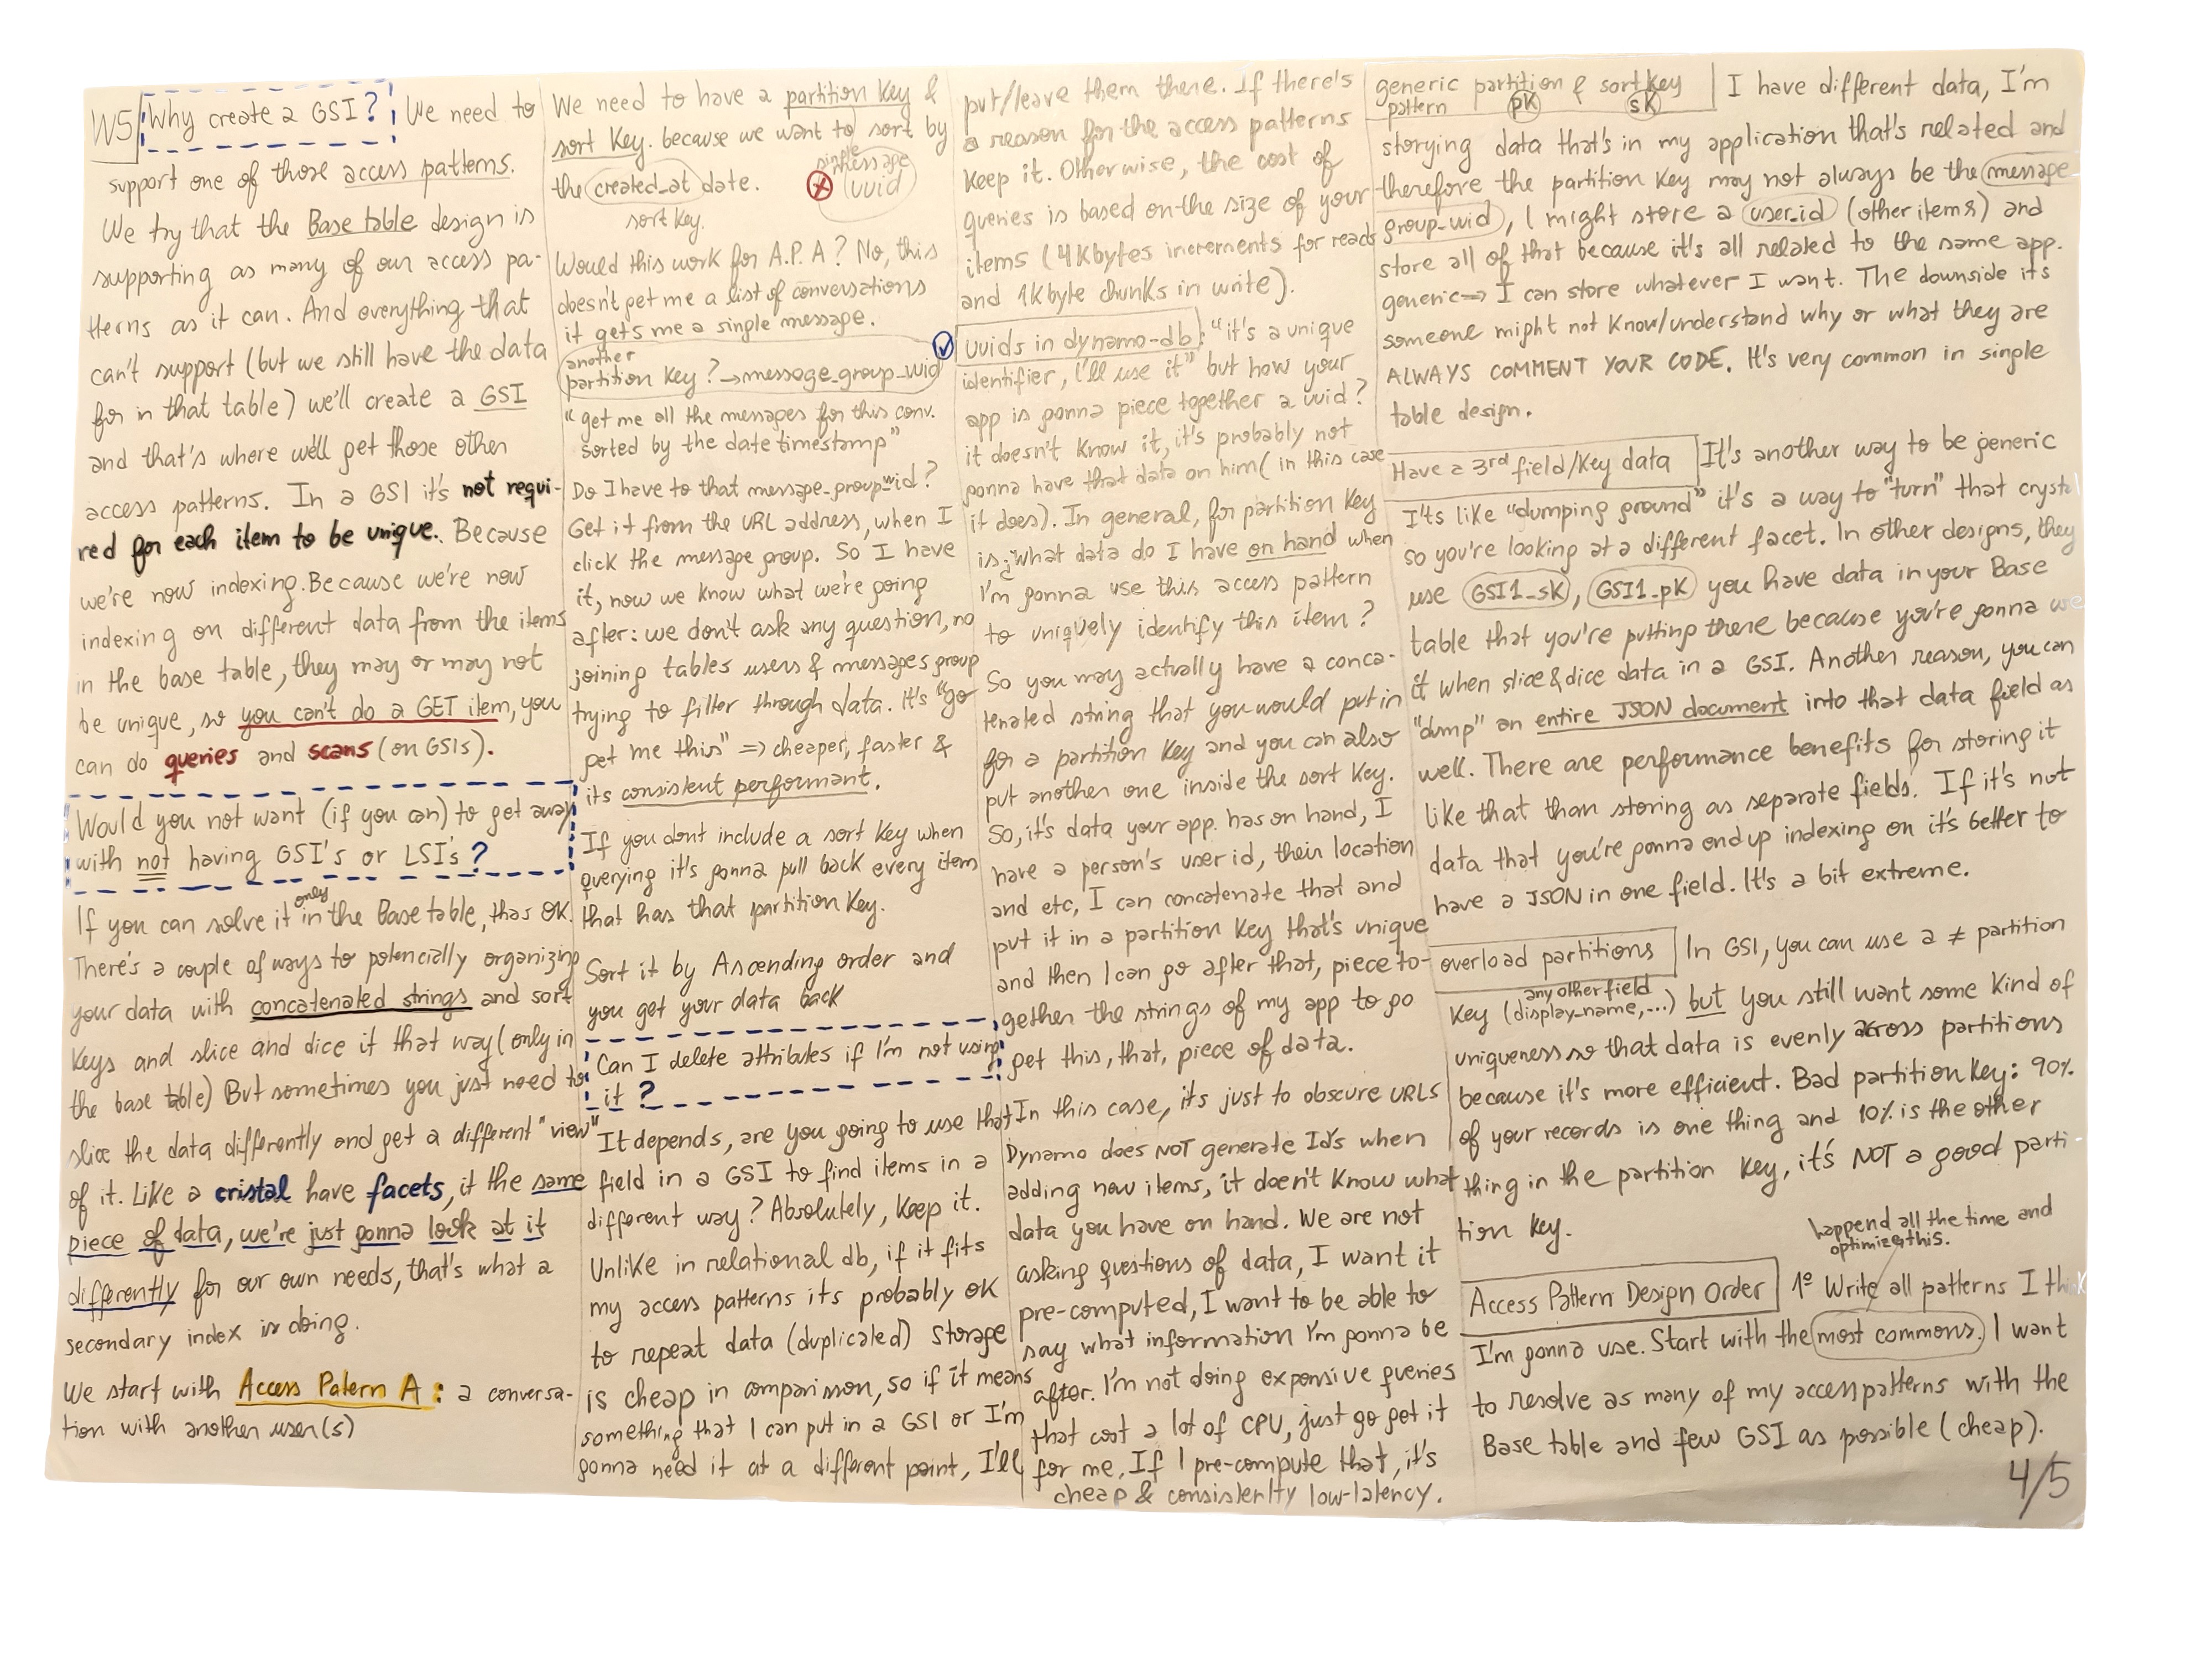 W5 Why create a GSI? We need to
support one of those access patterns.
We try that the Base table design is
supporting as many of our access pa-
tterns as it can. And everything that
can't support (but we still have the data
for in that table) we'll create a GSI
and that's where we'll get those other
access patterns. In a GSI it's not requi-
red for each item to be unique. Because
we're now indexing. Because we're now
indexing on different data from the items
in the base table, they may or may not
be unique, so you can't do a GET item, you
can do queries and scans (on GSIs).
Would you not want (if you can) to get away
with not having GSI's or LSI's?
only
If you can solve it in the Base table, thas OK.
There's a couple of ways to potencially organizing
your data with concatenated strings and sort
Keys and slice and dice it that way (only in
the base table) But sometimes you just need to
slice the data differently and get a different "view"
of it. Like a cristal have facets, it the same
piece of data, we're just gonna look at it
differently for our own needs, that's what a
secondary index is doing.
We start with Access Patern A: a conversa-
tion with another user(s)
We need to have a partition Key &
sort Key. because we want to sort by
the created_at date.
sort Key.
single
message
uuid
Would this work for A.P. A? No, this
doesn't get me a list of conversations
it gets me a single message.
another
partition Key? → message_group_uuid
"get me all the messages for this conv.
sorted by the date timestamp"
Do I have to that message_group_uuid?
Get it from the URL address, when I
click the message group. So I have
it, now we know what we're going
after: we don't ask any question, no
joining tables users & messages group
trying to filter through data. It's "go
get me this" => cheaper, faster &
its consistent performant.
If you dont include a sort Key when
querying it's gonna pull back every item
that has that partition Key.
Sort it by Ascending order and
you get your data back
Can I delete attributes if I'm not using
it?
It depends, are you going to use that
field in a GSI to find items in a
different way? Absolutely, Keep it.
Unlike in relational db, if it fits
my access patterns its probably OK
to repeat data (duplicated) storage
is cheap in comparisson, so if it means
something that I can put in a GSI or I'm
gonna need it at a different point, I'll
put/leave them there. If there's
a reason for the access patterns
Keep it. Otherwise, the cost of
queries is based on the size of your
items (4Kbytes increments for reads
and 1Kbyte chunks in write).
Uuids in dynamo-db: "it's a unique
identifier, I'll use it" but how your
app is gonna piece together a uuid?
it doesn't Know it, it's probably not
gonna have that data on him (in this case
it does). In general, for partition Key
is: what data do I have on hand when
I'm gonna use this access pattern
to uniquely identify this item?
So you may actually have a conca-
tenated string that you would put in
for a partition Key and you can also
put another one inside the sort Key.
So, it's data your app. has on hand, I
have a person's user id, their location
and etc, I can concatenate that and
put it in a partition Key that's unique
and then I can go after that, piece to-
gether the strings of my app to go
get this, that, piece of data.
In this case, its just to obscure URLs
Dynamo does NOT generate Id's when
adding new items, it doen't Know what
data you have on hand. We are not
asking questions of data, I want it
pre-computed, I want to be able to
say what information I'm gonna be
after. I'm not doing expensive queries
that cost a lot of CPU, just go get it
for me. If I pre-compute that, it's
cheap & consistenlty low-latency.
generic partition & sort Key
pattern pK sK
I have different data, I'm
storying data that's in my application that's related and
therefore the partition Key may not always be the message
group_uuid, I might store a user_id (other items) and
store all of that because it's all related to the same app.
generic => I can store whatever I want. The downside its
someone might not Know/understand why or what they are
ALWAYS COMMENT YOUR CODE. It's very common in single
table design.
Have a 3rd field/Key data It's another way to be generic
I'ts like "dumping ground" it's a way to "turn" that crystal
so you're looking at a different facet. In other designs, they
use GSI1_sK, GSI1_pK you have data in your Base
table that you're putting there because you're gonna use
it when slice & dice data in a GSI. Another reason, you can
"dump" an entire JSON document into that data field as
well. There are performance benefits for storing it
like that than storing as separate fields. If it's not
data that you're gonna end up indexing on it's better to
have a JSON in one field. It's a bit extreme.
overload partitions In GSI, you can use a ≠ partition
any other field
Key (display_name, ...) but you still want some Kind of
uniqueness so that data is evenly across partitions
because it's more efficient. Bad partition Key: 90%
of your records is one thing and 10% is the other
thing in the partition Key, it's NOT a good parti-
tion Key.
happend all the time and
optimize this.
Access Pattern Design Order 1º Write all patterns I think
I'm gonna use. Start with the most commons. I want
to resolve as many of my access patterns with the
Base table and few GSI as possible (cheap).
4/5